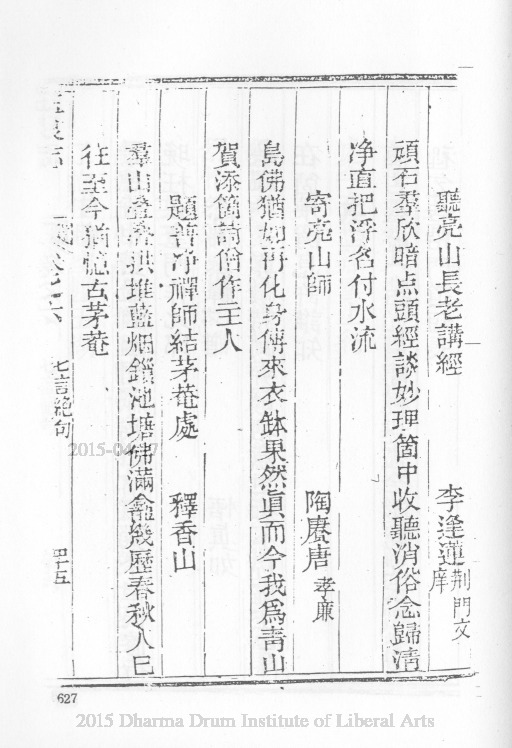 聽亮山長老講經 李逢蓮荆門文庠
頑石羣欣暗点頭經談妙理箇中收聽消俗念歸清
净直把浮名付水流
寄亮山師 陶賡唐孝廉
島佛猶如再化身傳來衣鉢果然眞而今我爲靑山
賀添箇詩僧作主人
題善净禪師結茅菴處 釋香山
羣山叠叠共堆藍烟鎖池塘佛滿龕幾歷春秋人已
往至今猶憶古茅菴
七言絶句 四十五
2015-04-
627
2015 Dharma Drum Institute of Liberal Arts